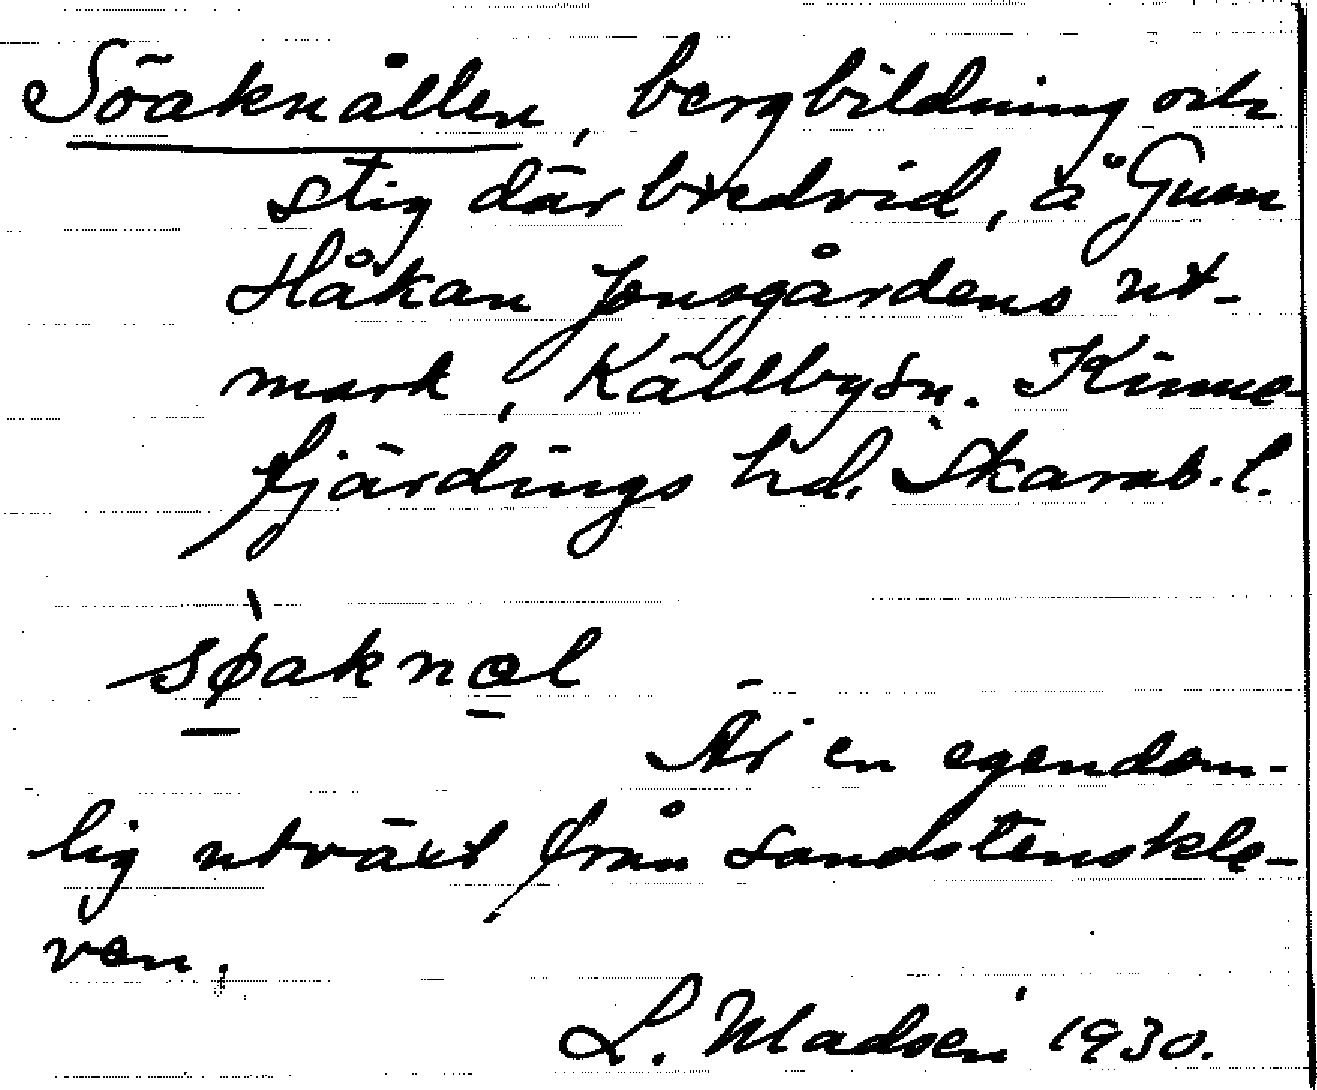 Söaknållen, bergbildning och
stig där bredvid, å Gum
Håkan Jonsgårdens ut-
mark, Källby sn. Kinne-
fjärdings hd. Skarab. l.
sø̀aknɑl
Är en egendom-
lig utväxt från sandstenskle-
ven.
L. Madsén 1930.